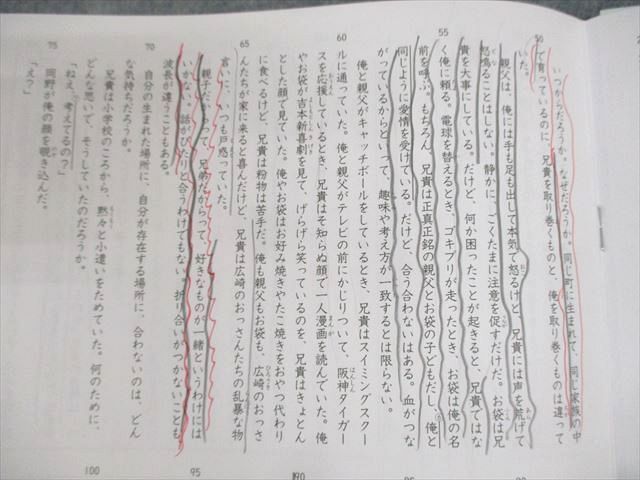 いつからだろうか。なぜだろうか。同じ町に生まれて、同じ家族の中
50
で育っているのに、兄貴を取り巻くものと、俺を取り巻くものは違って
いた。
親父は、俺には手も足も出して本気で怒るけど、兄貴には声を荒げて
怒鳴ることはしない。静かに、ごくたまに注意を促すだけだ。お袋は兄
貴を大事にしている。だけど、何か困ったことが起きると、兄貴ではな
55
く俺に頼る。電球を替えるとき、ゴキブリが走ったとき、お袋は俺の名
前を呼ぶ。もちろん、兄貴は正真正銘の親父とお袋の子どもだし、俺と
同じように愛情を受けている。だけど、合う合わないはある。血がつな
がっているからといって、趣味や考え方が一致するとは限らない。
俺と親父がキャッチボールをしているとき、兄貴はスイミングスクー
60
ルに通っていた。俺と親父がテレビの前にかじりついて、阪神タイガー
はんしん
スを応援しているとき、兄貴はそ知らぬ顔で一人漫画を読んでいた。俺
おうえん
まんが
やお袋が吉本新喜劇を見て、げらげら笑っているのを、兄貴はきょとん
よしもとしんきげき
とした顔で見ていた。俺やお袋はお好み焼きやたこ焼きをおやつ代わり
に食べるけど、兄貴は粉物は苦手だ。俺も親父もお袋も、広崎のおっさ
ひろさき
65
んたちが家に来ると喜んだけど、兄貴は広崎のおっさんたちの乱暴な物
言いに、いつも戸惑っていた。
親子だからって、兄弟だからって、好きなものが一緒というわけには
いかない。話がぴたりと合うわけでもない。折り合いがつかないことも、
波長が違うこともある。
70
自分の生まれた場所に、自分が存在する場所に、合わないのは、どん
な気持ちだろうか。
兄貴は小学校のころから、黙々と小遣いをためていた。何のために、
どんな思いで、そうしていたのだろうか。
「ねえ、考えてるの？」
75
岡野が俺の顔を覗き込んだ。
「え？」
95
100